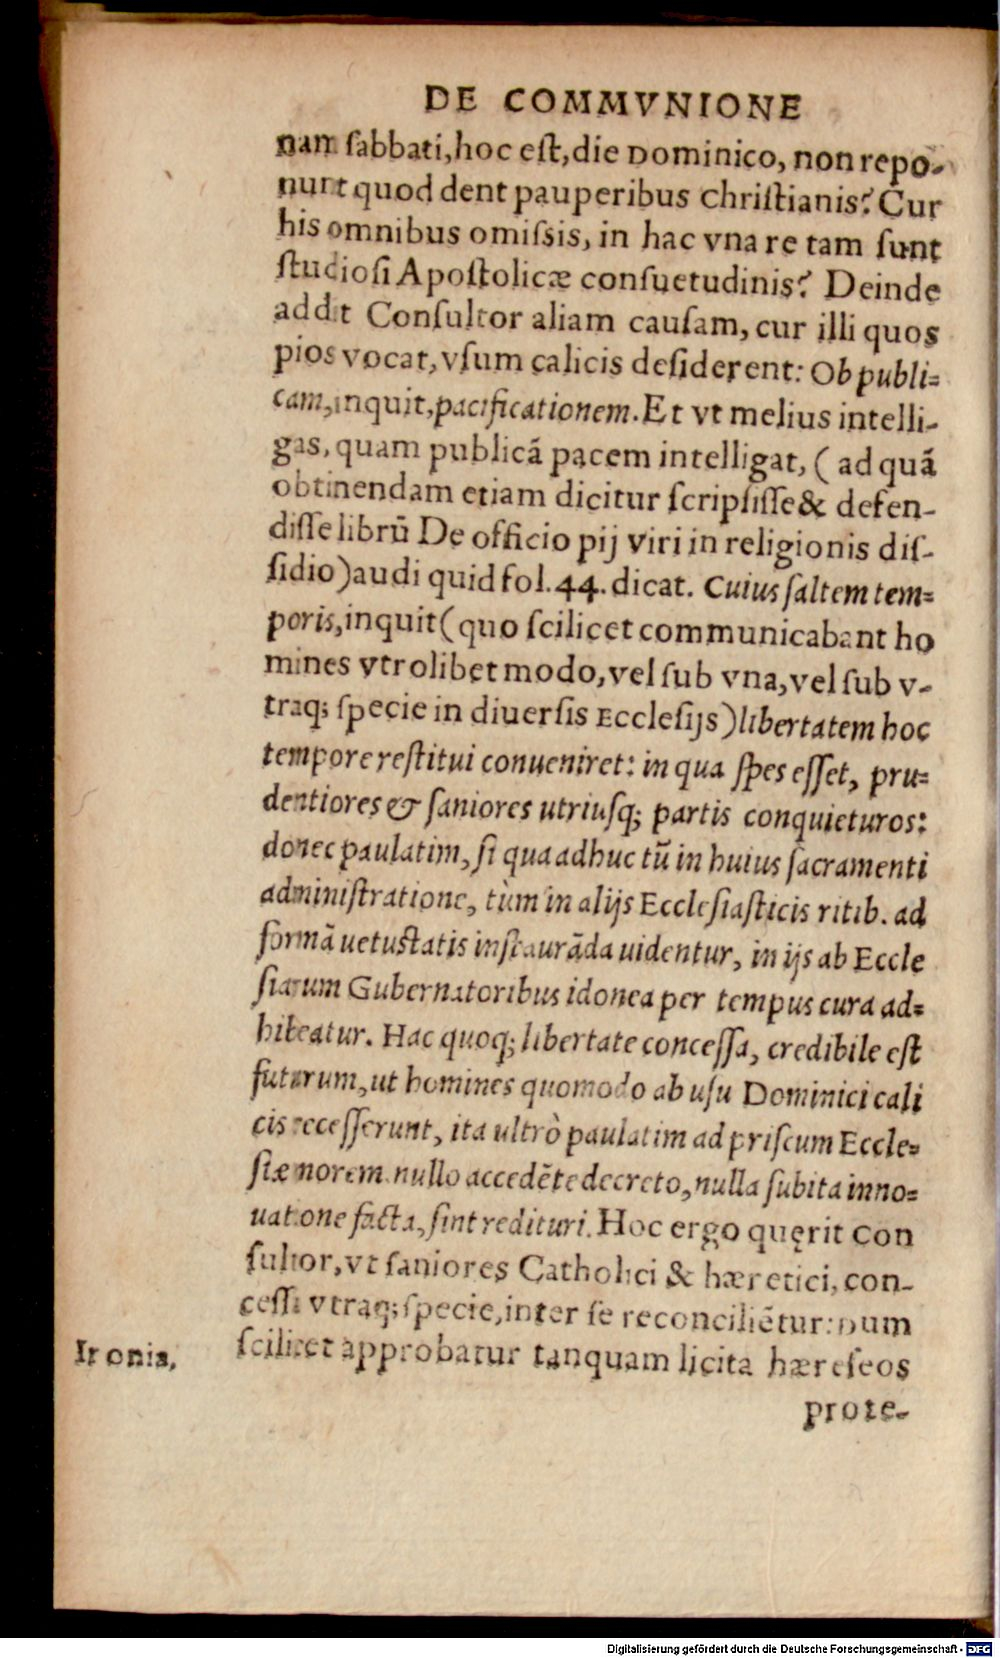 DE COMMVNIONE
nam ſabbati, hoc eſt, die Dominico, non repo-
nunt quod dent pauperibus Chriſtianis? Cur
his omnibus omiſsis, in hac vna re tam ſunt
ſtudioſi Apoſtolicæ conſuetudinis? Deinde
addit Conſultor aliam cauſam, cur illi quos
pios vocat, vſum calicis deſiderent: Ob publi=
cam, inquit, pacificationem. Et vt melius intelli-
gas, quam publicā pacem intelligat, ( ad quā
obtinendam etiam dicitur ſcripſiſſe & defen-
diſſe librū De officio pij viri in religionis diſ-
ſidio) audi quid fol. 44. dicat. Cuius ſaltem tem=
poris, inquit (quo ſcilicet communicabant ho
mines vtrolibet modo, vel ſub vna, vel ſub v-
traq; ſpecie in diuerſis Eccleſijs) libertatem hoc
tempore reſtitui conueniret: in qua ſpes eſſet, pru=
dentiores & ſaniores utriuſq; partis conquieturos:
donec paulatim, ſi qua adhuc tū in huius ſacramenti
adminiſtratione, tùm in alijs Eccleſiaſticis ritib. ad
formā uetuſtatis inſtaurāda uidentur, in ijs ab Eccle
ſiarum Gubernatoribus idonea per tempus cura ad=
hibeatur. Hac quoq; libertate conceſſa, credibile eſt
futurum, ut homines quomodo ab uſu Dominici cali
cis receſſerunt, ita ultrò paulatim ad priſcum Eccle=
ſiæ morem nullo accedēte decreto, nulla ſubita inno=
uatione facta, ſint redituri. Hoc ergo quęrit Con
ſultor, vt ſaniores Catholici & hæretici, con-
ceſſa vtraq; ſpecie, inter ſe reconciliētur: dum
ſcilicet approbatur tanquam licita hæreſeos
Ironia.
prote-
Digitalisierung gefördert durch die Deutsche Forschungsgemeinschaft - DFG